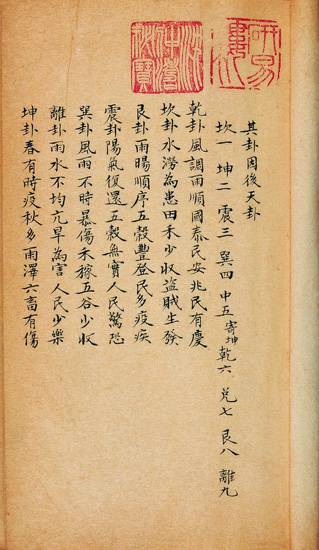 其卦因後天卦
坎一 坤二 震三 巽四 中五寄坤 乾六 兌七 艮八 離九
乾卦風調雨順國泰民安兆民有慶
坎卦水澇為患田禾少收盜賊生發
艮卦雨暘順序五穀豐登民多疫疾
震卦陽氣復還五穀無實人民驚恐
巽卦風雨不時暴傷禾稼五谷少收
離卦雨水不均亢旱為害人民少樂
坤卦春有時疫秋多雨澤六畜有傷